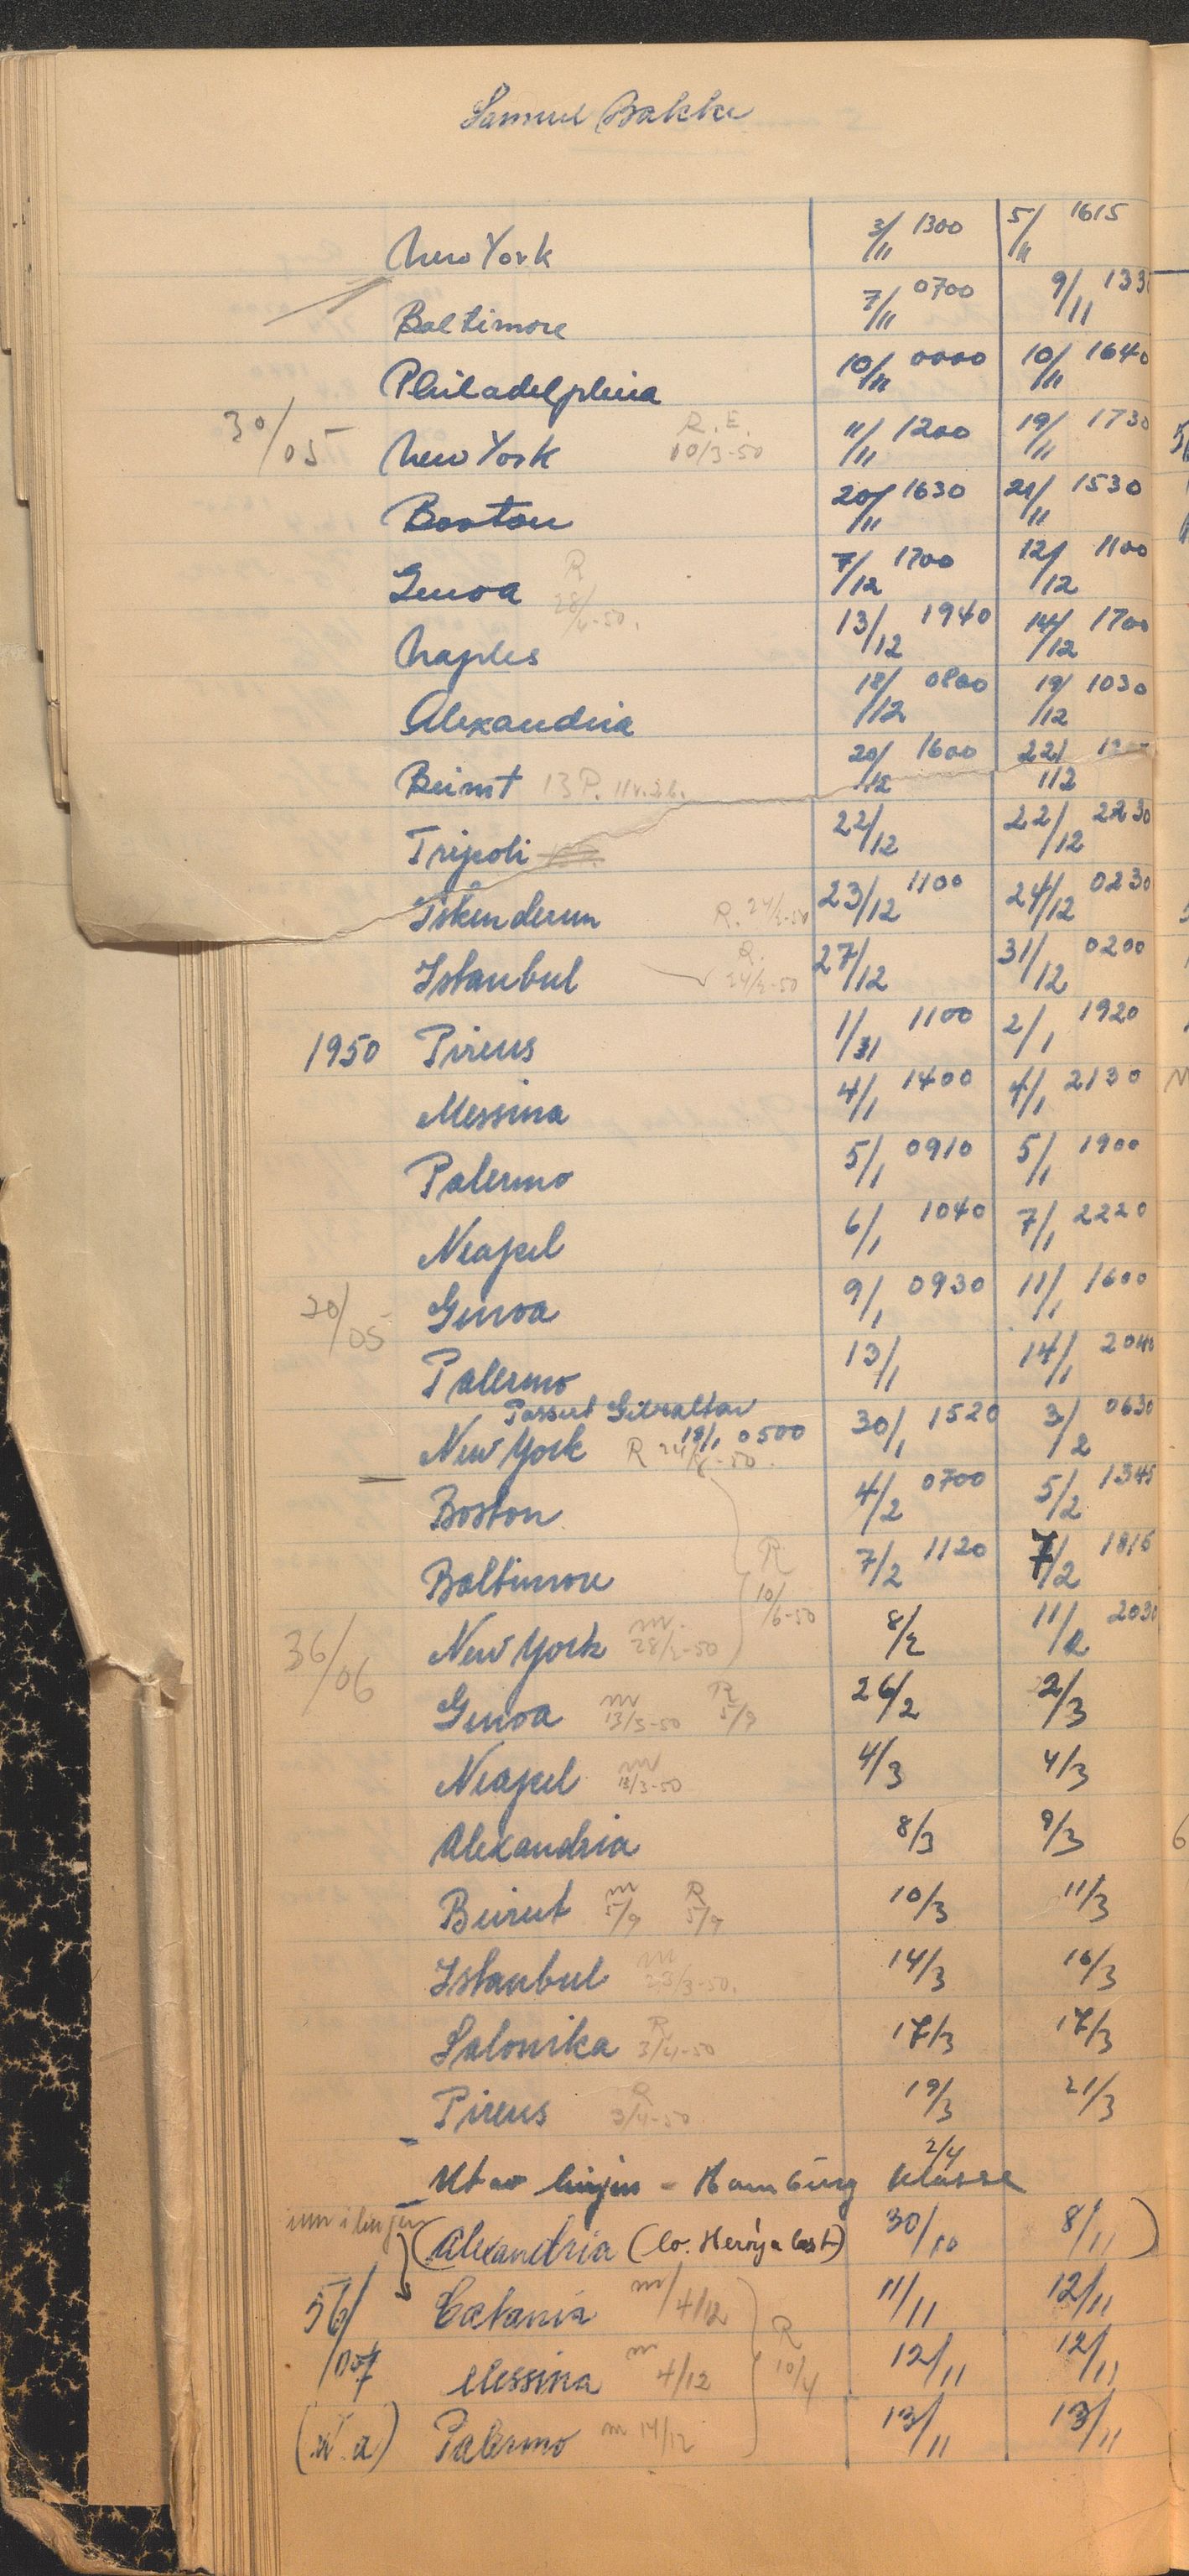 Samuel Bakke
New York 3/11 1300 5/11 1615
Baltimore 7/11 0700 9/11 133
Philadelphia 10/11 0000 10/11 1640
30/05 New York R.E. 10/3-50 11/11 1200 19/11 1730
Boston 20/11 1630 21/11 1530
Genoa R 28/4-50. 7/12 1700 12/12 1100
Naples 13/12 1940 14/12 1700
Alexandria 18/12 0800 19/12 1030
Beirut 13 P. 20/12 1600 22/12
Tripoli 22/12 22/12 2230
Iskenderun R. 24/2-50 23/12 1100 24/12 0230
Istanbul R. 24/2-50 27/12 31/12 0200
1950 Pireus 1/31 1100 2/1 1920
Messina 4/1 1400 4/1 2130
Palermo 5/1 0910 5/1 1900
Neapel 6/1 1040 7/1 2220
20/05 Genoa 9/1 0930 11/1 1600
Palermo 13/1 14/1 2040
Passert Gibraltar
New York 18/1 0500 30/1 1520 3/2 0630
R 24/8-50.
Boston 4/2 0700 5/2 1345
Baltimore R 10/6-50 7/2 1120 7/2 1815
36/06 New York m. 28/2-50 8/2 11/2 2030
Genoa m 13/3-50 R 5/9 26/2 2/3
Neapel m 13/3-50 4/3 4/3
Alexandria 8/3 9/3
Beirut m 5/9 R 5/9 10/3 11/3
Istanbul m 23/3-50. 14/3 16/3
Salonika R 3/4-50 17/3 17/3
Pireus R 3/4-50 19/3 21/3
Ut av linjen - Hamburg klasse 2/4
inn i linjen
(Alexandria (lo. Herøya last) 30/10 8/11)
56/ Catania m/4/12 11/11 12/11
/007 Messina m 4/12 R 10/4 12/11 12/11
(ut. a) Palermo m 14/12 13/11 13/11